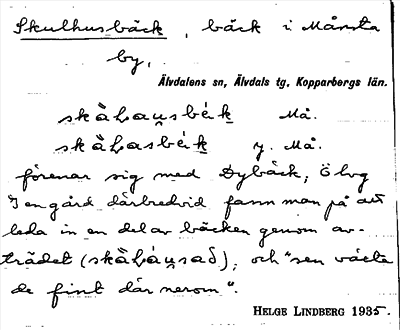 Skulhusbäck, bäck i Månsta
by,
Älvdalens sn, Älvdals tg, Kopparbergs län.
skåhau̯sbék Må.
skåhasbék y. Må.
förenar sig med Dybäck, Ö lvg
I en gård därbredvid fann man på att
leda in en del av bäcken genom av-
trädet (skåháu̯sað), och "sen växte
de fint där nerom".
HELGE LINDBERG 1935.